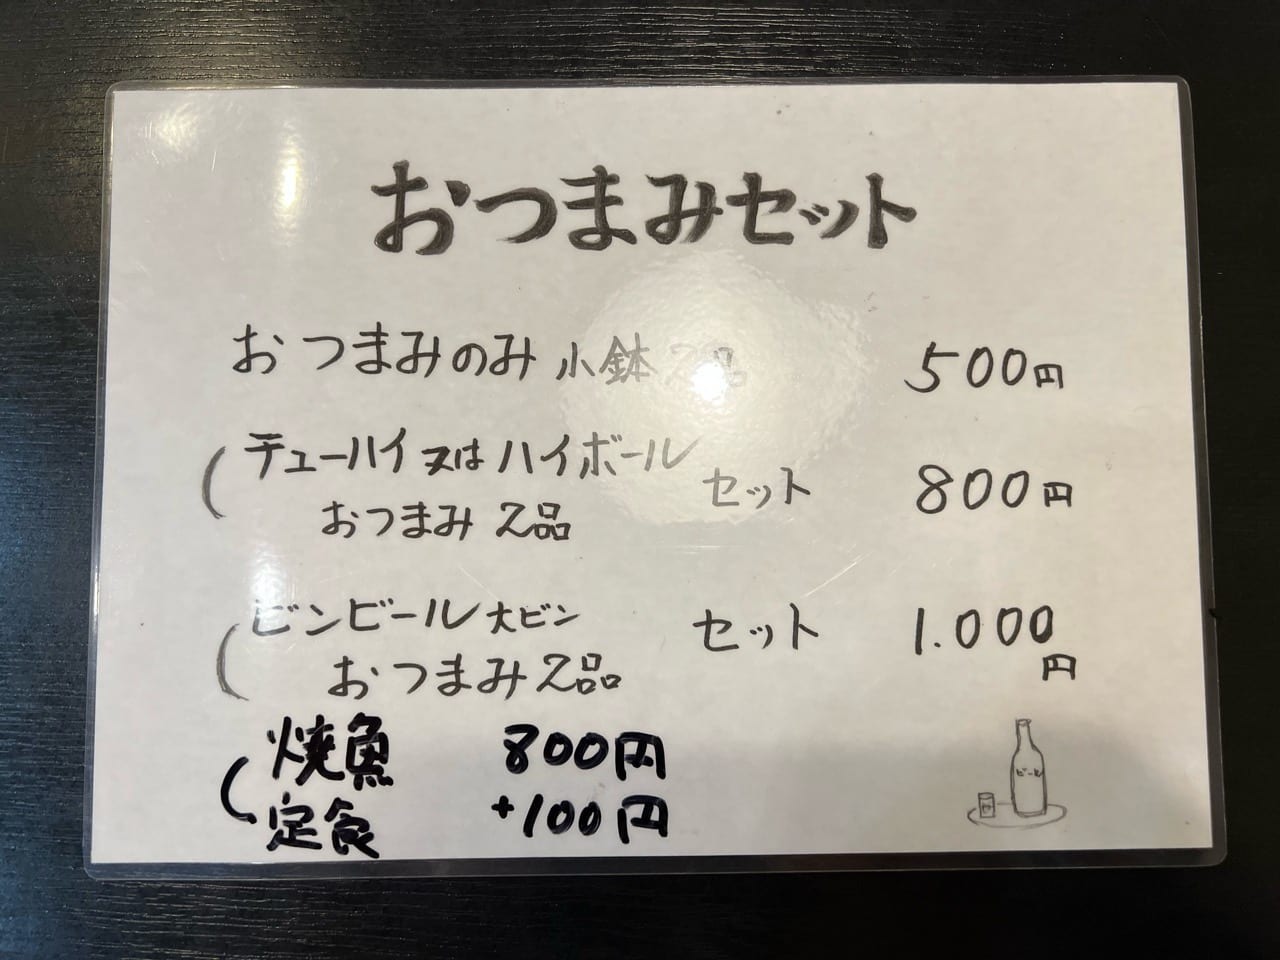 おつまみセット
おつまみのみ 小鉢 2品 500円
チューハイ又はハイボール
おつまみ 2品 セット 800円
ビンビール 大ビン
おつまみ 2品 セット 1.000円
焼魚 800円
定食 +100円
ビール